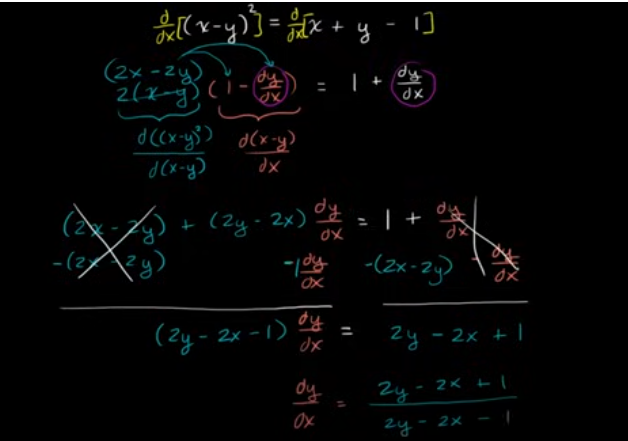 d/dx[(x-y)²] = d/dx[x + y - 1]
(2x-2y)
2(x-y) (1 - dy/dx) = 1 + dy/dx
d((x-y)²)/d(x-y) d(x-y)/dx
(2x - 2y) + (2y - 2x) dy/dx = 1 + dy/dx
-(2x - 2y) -1 dy/dx -(2x-2y) - dy/dx
(2y - 2x - 1) dy/dx = 2y - 2x + 1
dy/dx = (2y - 2x + 1)/(2y - 2x - 1)